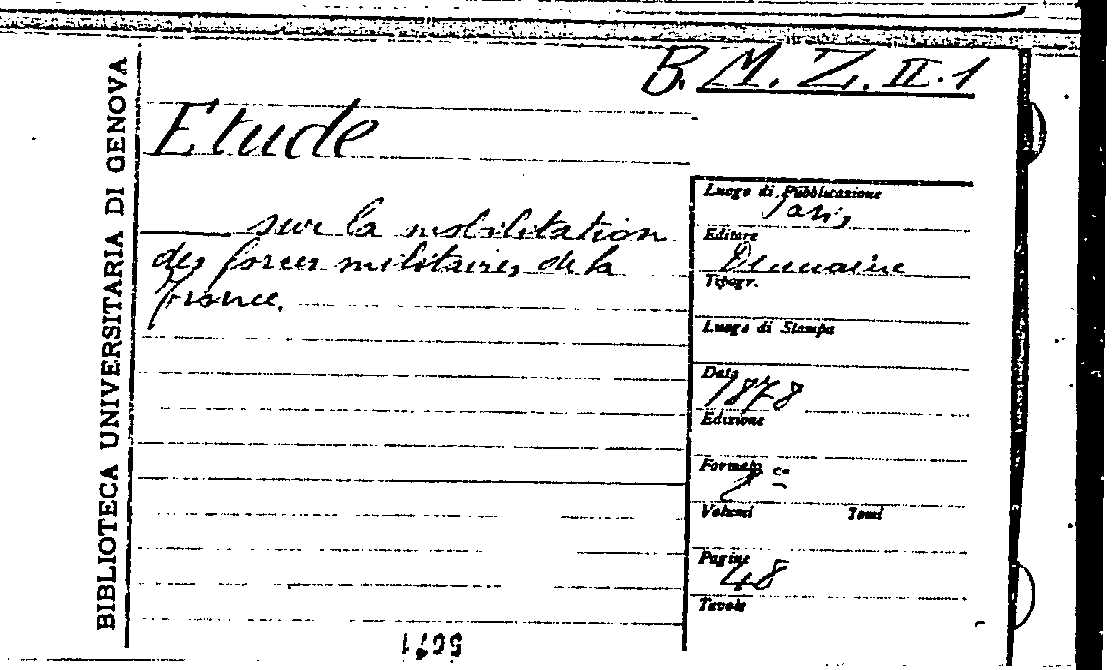 B. M. Z. II. 1
BIBLIOTECA UNIVERSITARIA DI GENOVA
Etude
sur la mobilitation
des forces militaires de la
France.
Luogo di Pubblicazione
Paris
Editore
Dumaine
Tipogr.
Luogo di Stampa
Data
1878
Edizione
Formato
8º
Volumi Tomi
Pagine
48
Tavole